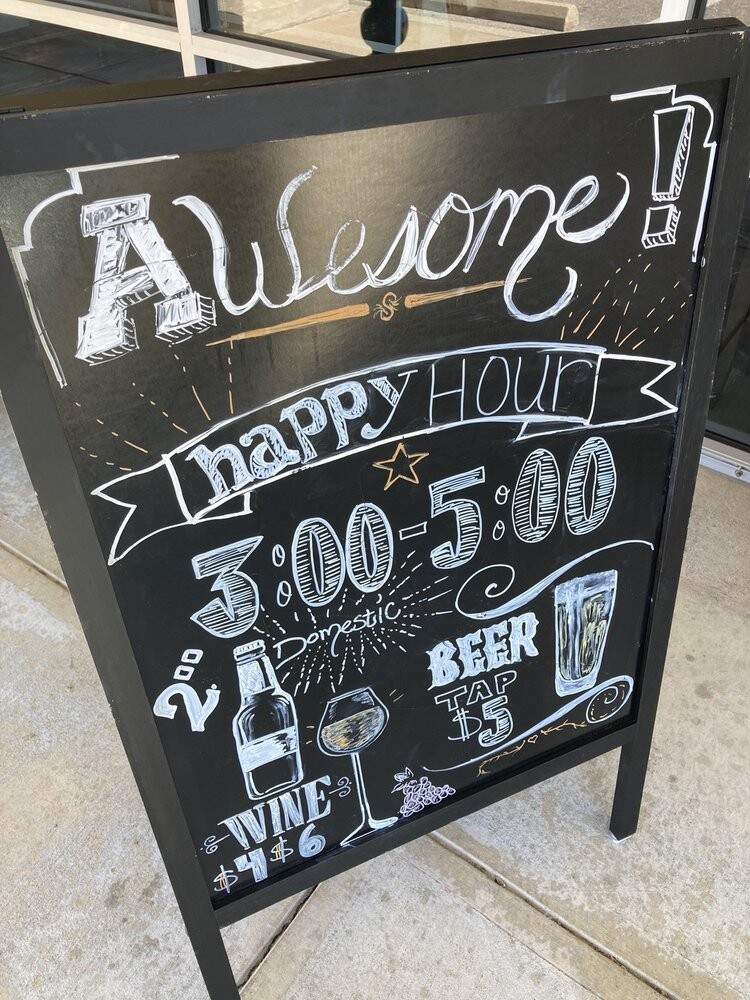 AWesome!
happy Hour
3:00-5:00
Domestic
2.00
BEER
TAP
$5
WINE
$4 $6